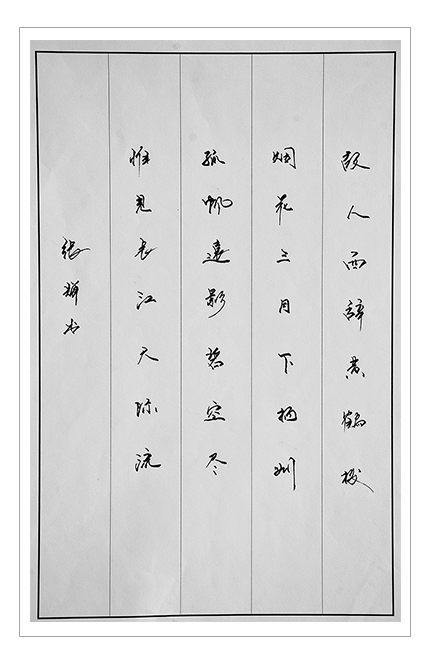 故人西辞黄鹤楼
烟花三月下扬州
孤帆远影碧空尽
惟见长江天际流
张辉书